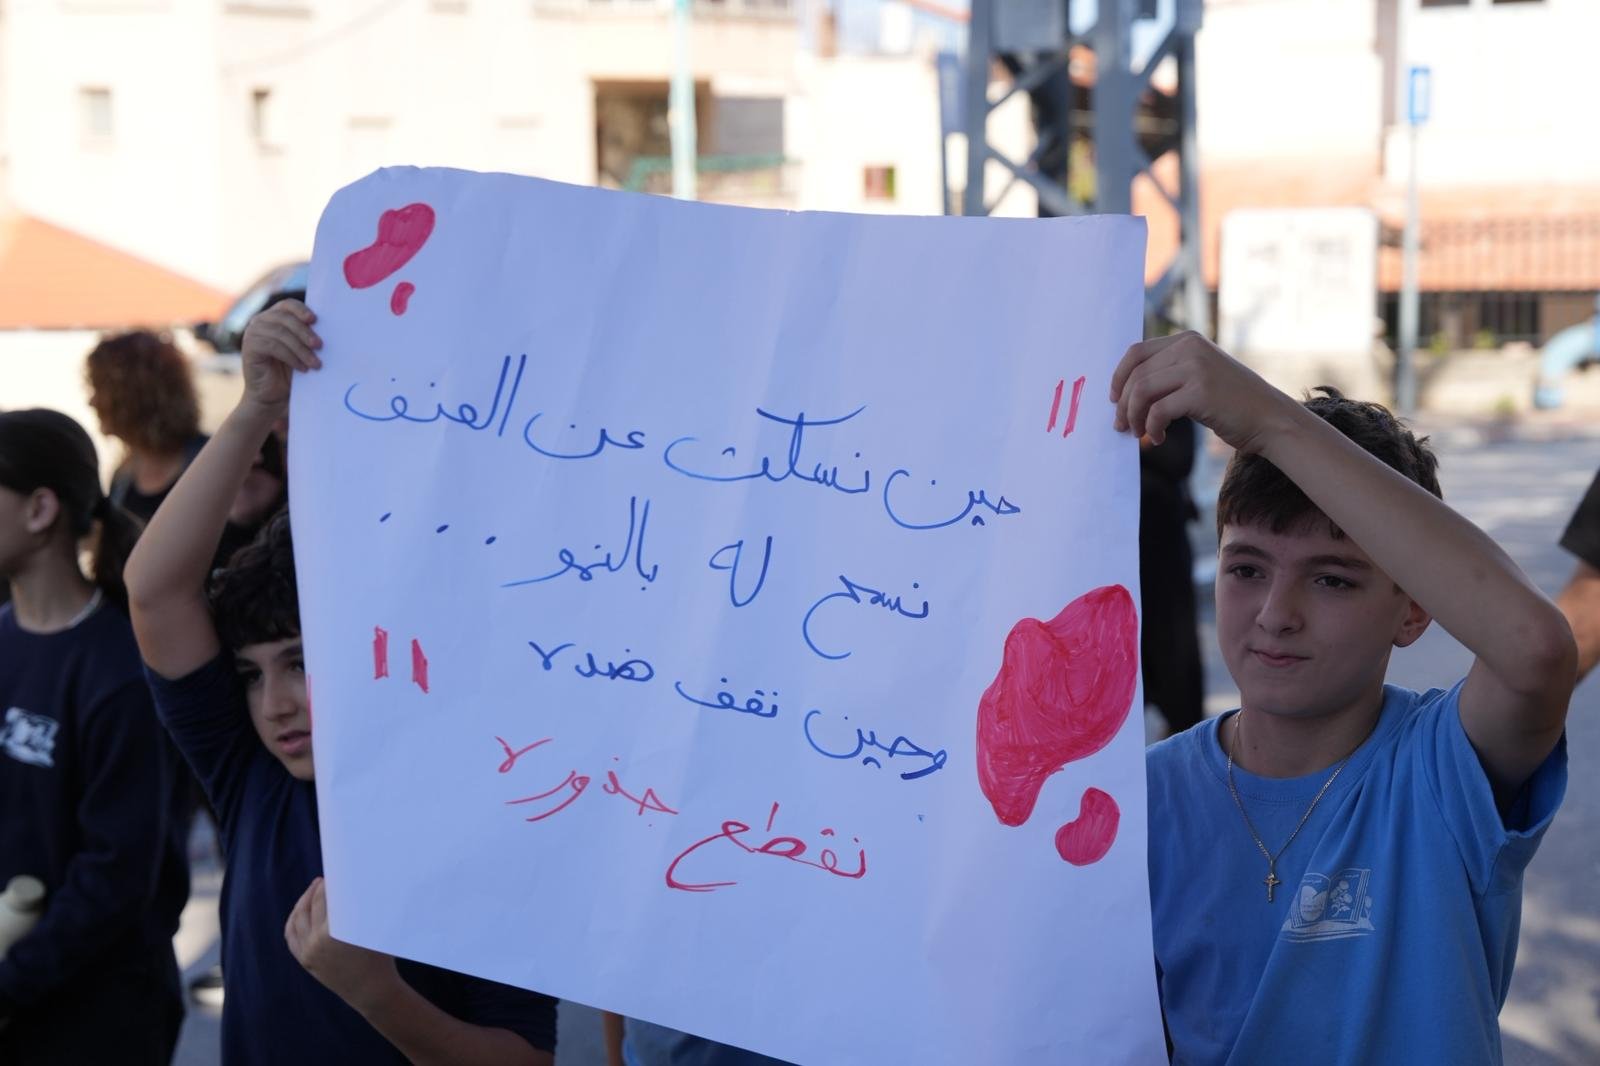 " حين نسكت عن العنف
نسمح له بالنمو . . .
وحين نقف ضده "
نقطع جذوره